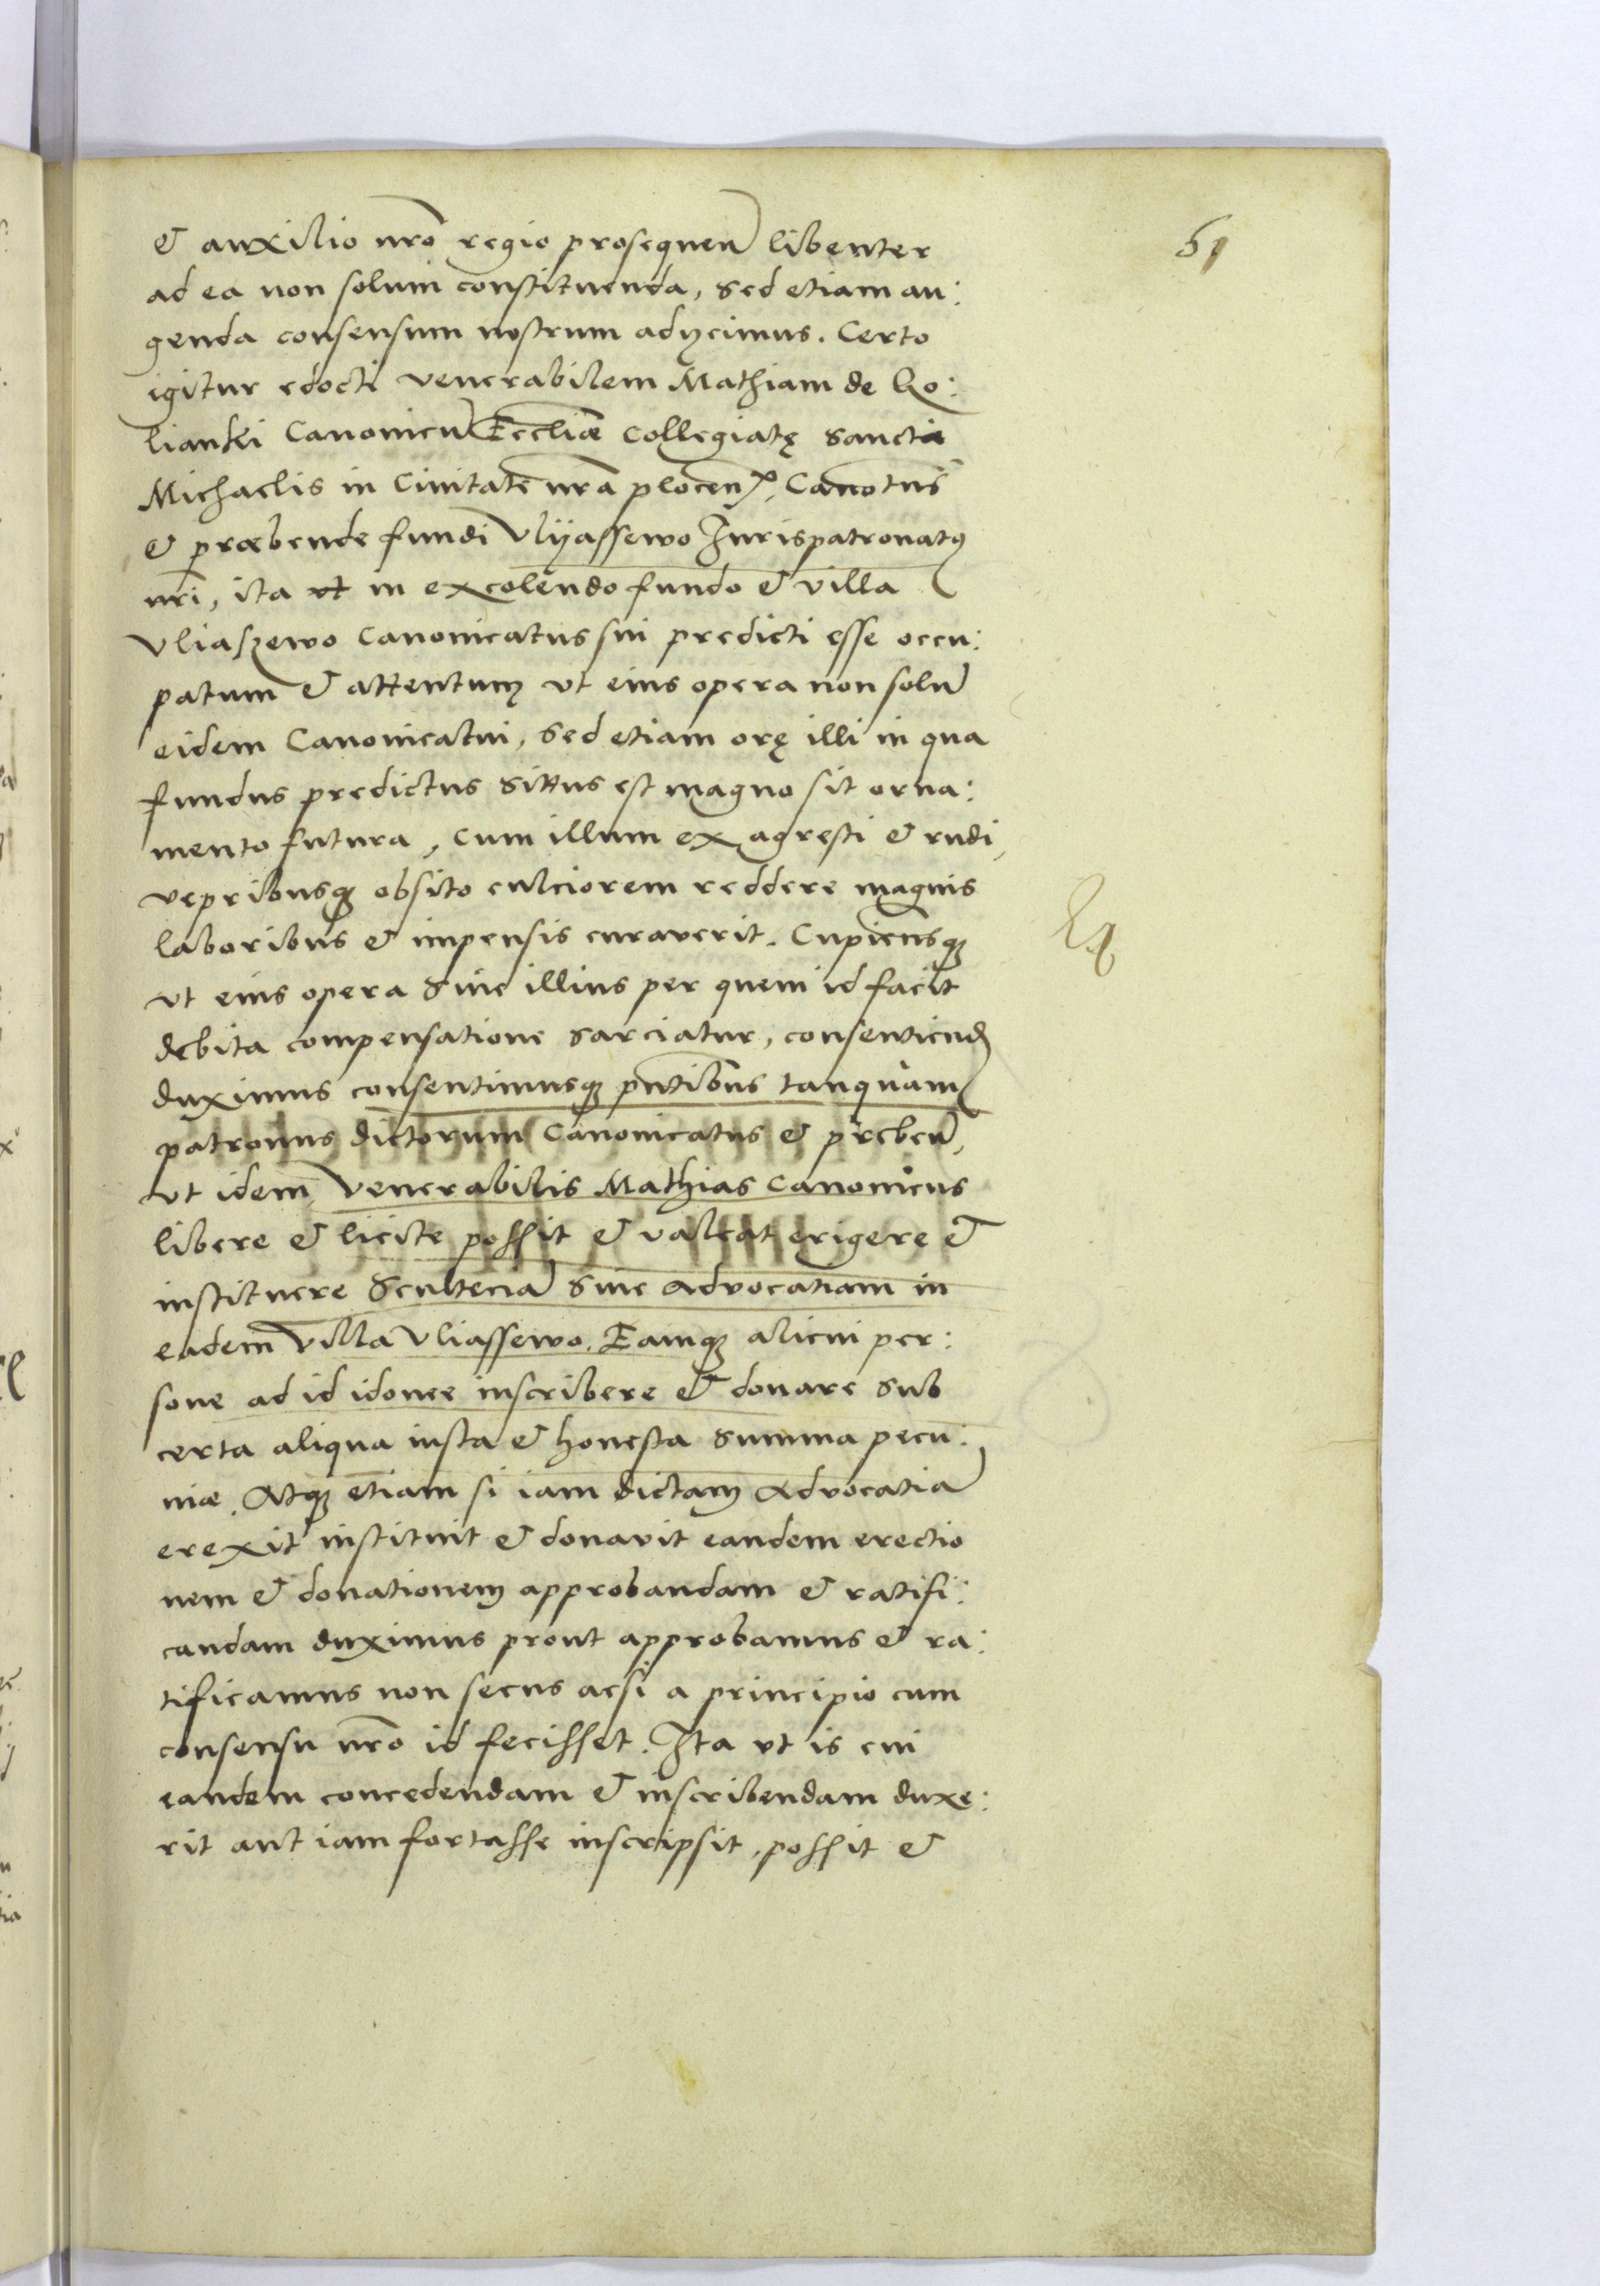 61
& auxilio nrō regio prosequen̄ libenter
ad ea non solum constituenda, sed etiam au:
genda consensum nostrum adycimus. Certo
igitur edocti venerabilem Mathiam de Ko:
lianki Canonicū Ecclīæ Collegiatę Sancti
Michaelis in Ciuitatē nrā plocen̄, Canotus̄
& præbende fundi Vlyassewo Jurispatronatꝰ
nrī, ita vt in excolendo fundo & villa
Vliaszewo Canonicatus sui predicti esse occu:
patum & attentum vt eius opera non solū
eidem Canonicatui, sed etiam orę illi in qua
fundus predictus sittus est magno sit orna:
mento futura, cum illum ex agresti & rudi,
vepribusꝗ obsito culciorem reddere magnis
laboribus & impensis curauerit. Cupiensꝗ
vt eius opera siue illius per quem id facit
debita compensatione sarciatur, consentiend̄
duximus consentimusꝗ pn̄tibus tanquam
patronus dictorum Canonicatus & prebēn,
vt idem venerabilis Mathias Canonicus
libere & licite possit & valeat erigere &
instituere Scultetiā siue Advocatiam in
eadem villa Vliassewo. Eamꝗ alicui per:
sone ad id idonee inscribere & donare sub
certa aliqua iusta & honesta summa pecu:
niæ. Atꝗ etiam si iam dictam Advocatiā
erexit instituit & donavit eandem erectio
nem & donationem approbandam & ratifi:
candam duximus prout approbamus & ra:
tificamus non secus acsi a principio cum
consensu nrō id fecisset. Ita vt is cui
eandem concedendam & inscribendam duxe:
rit aut iam fortasse inscripsit, possit &